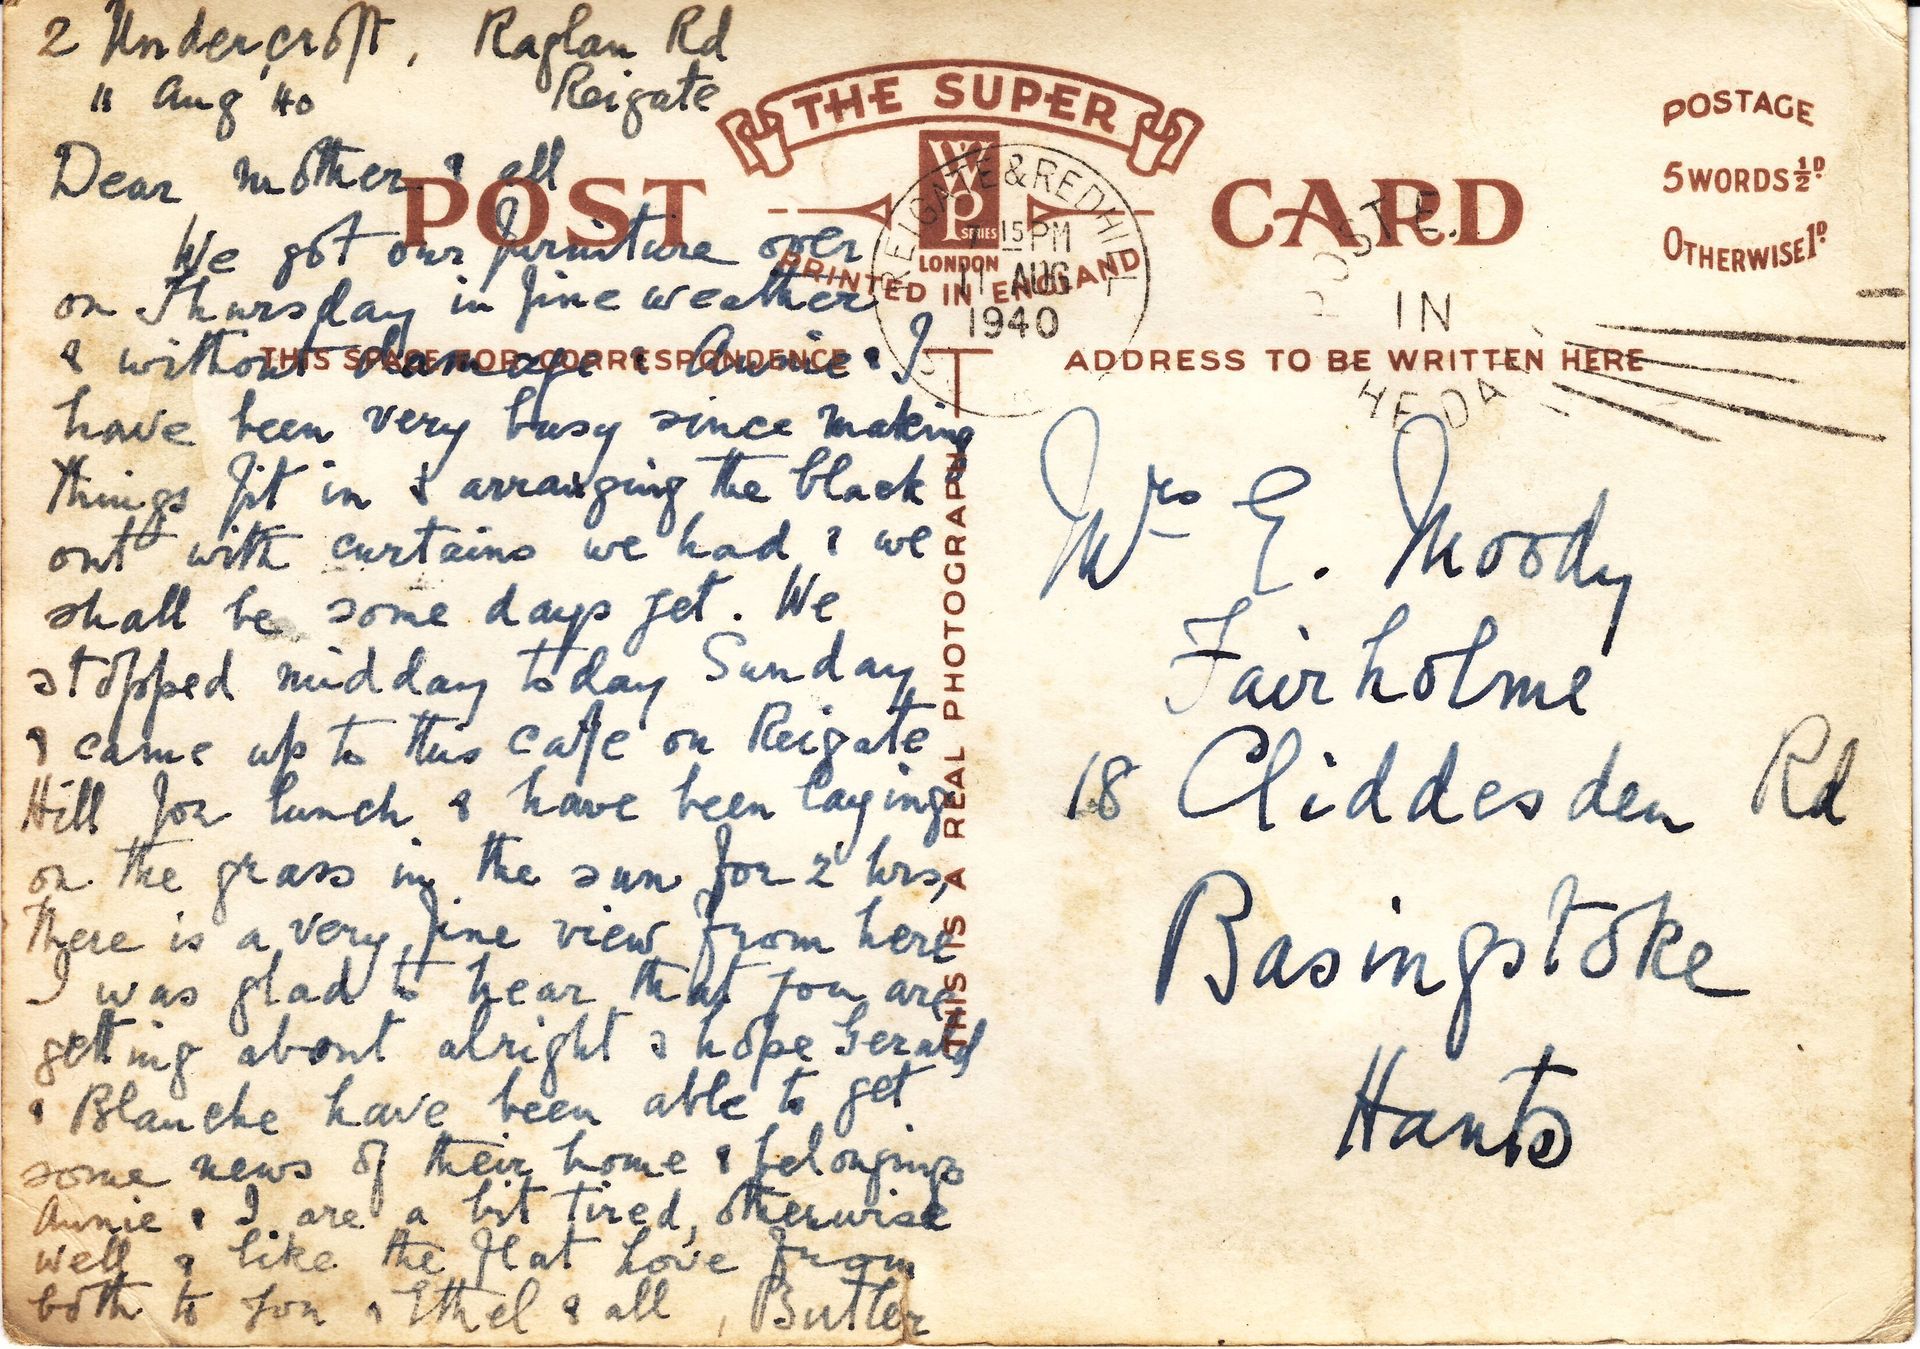 2 Undercroft, Raglan Rd
11 Aug '40 Reigate
Dear mother & all
We got our furniture over
on Thursday in fine weather
& without damage & Annie & I
have been very busy since making
things fit in & arranging the black
out with curtains we had & we
shall be some days yet. We
stopped midday today Sunday
& came up to this cafe on Reigate
Hill for lunch & have been laying
on the grass in the sun for 2 hrs,
there is a very fine view from here
I was glad to hear that you are
getting about alright & hope Gerald
& Blanche have been able to get
some news of their home & belongings
Annie & I are a bit tired, otherwise
well & like the flat love from
both to you & Ethel & all, Butler
THE SUPER
POST CARD
WP
SERIES
LONDON
PRINTED IN ENGLAND
THIS SPACE FOR CORRESPONDENCE
ADDRESS TO BE WRITTEN HERE
THIS IS A REAL PHOTOGRAPH
POSTAGE
5 WORDS ½D.
OTHERWISE 1D.
REIGATE & REDHILL
15 PM
11 AUG
1940
POST E
IN
HE DA
Mrs E. Moody
Fairholme
18 Cliddesden Rd
Basingstoke
Hants